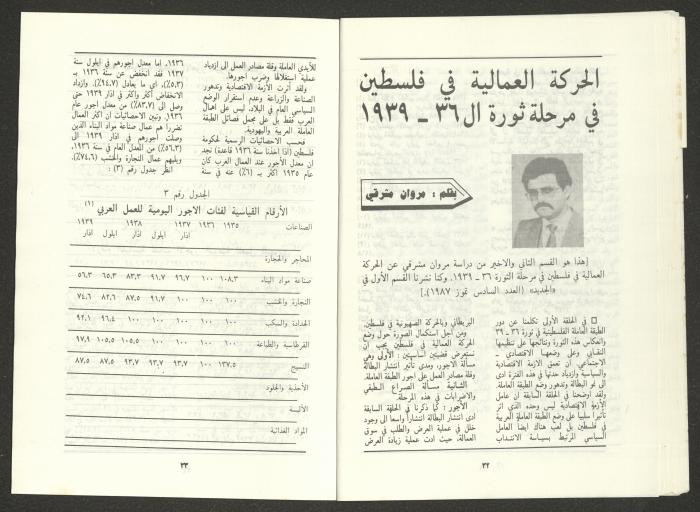 الحركة العمالية في فلسطين
في مرحلة ثورة ال ٣٦ ـ ١٩٣٩
بقلم : مروان مشرقي
[هذا هو القسم الثاني والاخير من دراسة مروان مشرقي عن الحركة
العمالية في فلسطين في مرحلة الثورة ٣٦ ـ ١٩٣٩. وكنا نشرنا القسم الأول في
«الجديد» (العدد السادس تموز ١٩٨٧).]
□ في الحلقة الأولى تكلمنا عن دور
الطبقة العاملة الفلسطينية في ثورة ٣٦ ـ ٣٩
وانعكاس هذه الثورة ونتائجها على تنظيمها
النقابي وعلى وضعها الاقتصادي ـ
الاجتماعي. ان تعمق الازمة الاقتصادية
والسياسية وازدياد حدتها في هذه الفترة ادى
الى نمو البطالة وتدهور وضع الطبقة العاملة.
ولقد اوضحنا في الحلقة السابقة ان عامل
الأزمة الاقتصادية ليس وحده الذي اثر
تأثيرا سلبيا على وضع الطبقة العاملة العربية
في فلسطين بل لعب هناك ايضا العامل
السياسي المرتبط بسياسة الانتداب
البريطاني وبالحركة الصهيونية في فلسطين.
ومن أجل استكمال الصورة حول وضع
الحركة العمالية في فلسطين يجب ان
نستعرض قضيتين اساسيتين : الأولى وهي
مسألة الاجور، ومدى تأثير انتشار البطالة
وقلة مصادر العمل على اجور الطبقة العاملة.
الثانية مسألة الصراع الطبقي
والاضرابات في هذه المرحلة.
الأجور : كما ذكرنا في الحلقة السابقة
ادى انتشار البطالة انتشارا واسعا الى وجود
خلل في عملية العرض والطلب في سوق
العمالة، حيث ادت عملية زيادة العرض
٣٢
للأيدي العاملة وقلة مصادر العمل الى ازدياد
عملية استغلالها وضرب اجورها.
ولقد أثرت الازمة الاقتصادية وتدهور
الصناعة والزراعة وعدم استقرار الوضع
السياسي العام في البلاد، ليس على اعمال
العرب فقط بل على مجمل فصائل الطبقة
العاملة العربية واليهودية.
فحسب الاحصائيات الرسمية لحكومة
فلسطين (اذا اخذنا سنة ١٩٣٦ قاعدة) نجد
ان معدل الأجور عند العمال العرب كان
عام ١٩٣٥ اكثر بـ (٦٪) عنه في سنة
١٩٣٦. اما معدل اجورهم في ايلول سنة
١٩٣٧ فقد انخفض عن سنة ١٩٣٦ بـ
(٥,٣٪)، اي ما يعادل (٩٤,٧٪). وازداد
الانخفاض أكثر واكثر في اذار ١٩٣٩ حتى
وصل الى (٨٣,٧٪) من معدل اجور عام
١٩٣٦. وتبين الاحصائيات ان اكثر العمال
تضررا هم عمال صناعة مواد البناء الذين
وصلت أجورهم في اذار ١٩٣٩ الى
(٥٦,٣٪) من المعدل العام في سنة ١٩٣٦.
ويليهم عمال التجارة والخشب (٧٤,٦٪).
انظر جدول رقم (٣) :
الجدول رقم ٣
الأرقام القياسية لفئات الاجور اليومية للعمل العربي (١)
الصناعات ١٩٣٥ ١٩٣٦ ١٩٣٧ ١٩٣٨ ١٩٣٩
اذار ايلول اذار ايلول اذار
المحاجر والحجارة
صناعة مواد البناء ١٠٨,٣ ١٠٠ ٩٦,٧ ٩١,٧ ٨٣,٣ ٦٥,٣ ٥٦,٣
التجارة والخشب ١٠٠ ١٠٠ ١٠٠ ٩١,٧ ٨٧,٥ ٨٢,٦ ٧٤,٦
الحدادة والسكب ١٠٠ ١٠٠ ١٠٠ ١٠٠ ١٠٠ ٩٦,٤ ٩٢,١
القرطاسية والطباعة ١٠٠ ١٠٠ ١٠٠ ١٠٠ ١٠٥,٥ ١٠٥,٥ ٩٧,٩
النسيج ١٣٧,٥ ١٠٠ ٩٣,٧ ٩٣,٧ ٩٣,٧ ٨٧,٥ ٨٧,٥
الأحذية والجلود
الألبسة
المواد الغذائية
٣٣